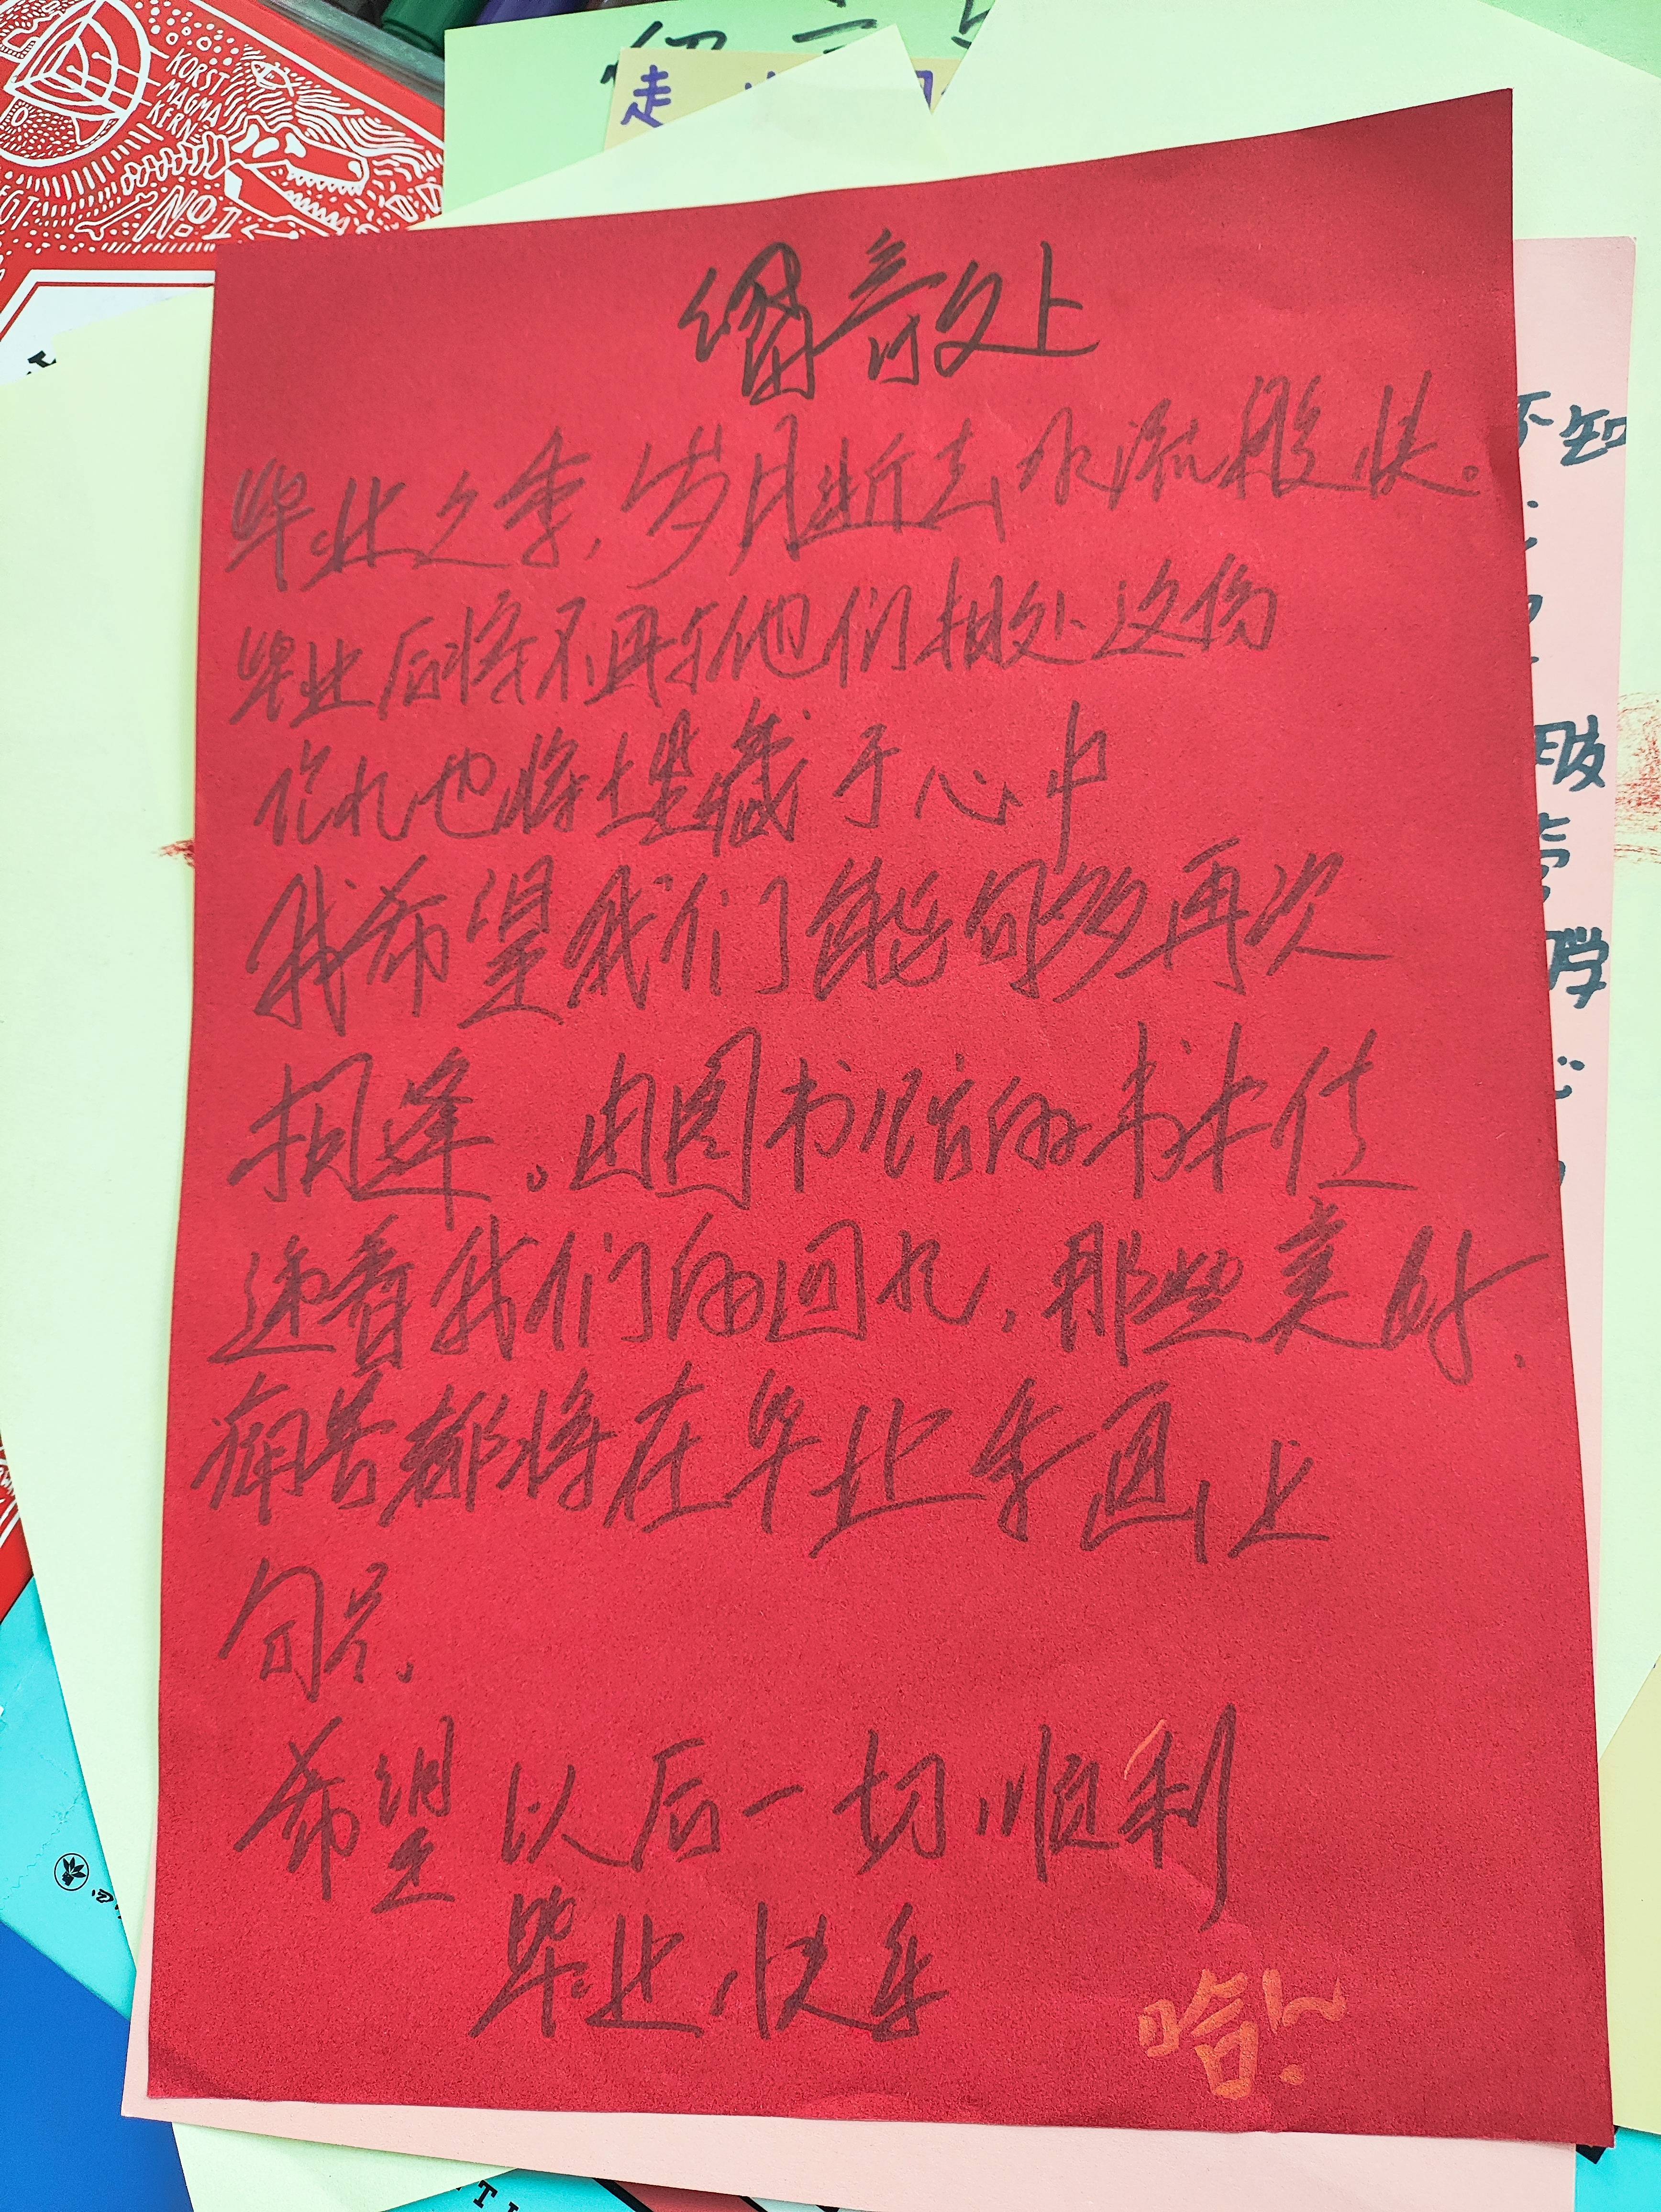 KORST
MAGMA
KERN
No.1
走
不知
服
学
留言处
毕业之季,岁月断去水流般快。
毕业后将不再与他们相处这份
忆也将埋藏于心中
我希望我们能够再次
相逢。由图书馆的书本传
递着我们的回忆,那些美好.
痛苦都将在毕业季画上
句号.
希望 以后一切顺利
毕业快乐
哈